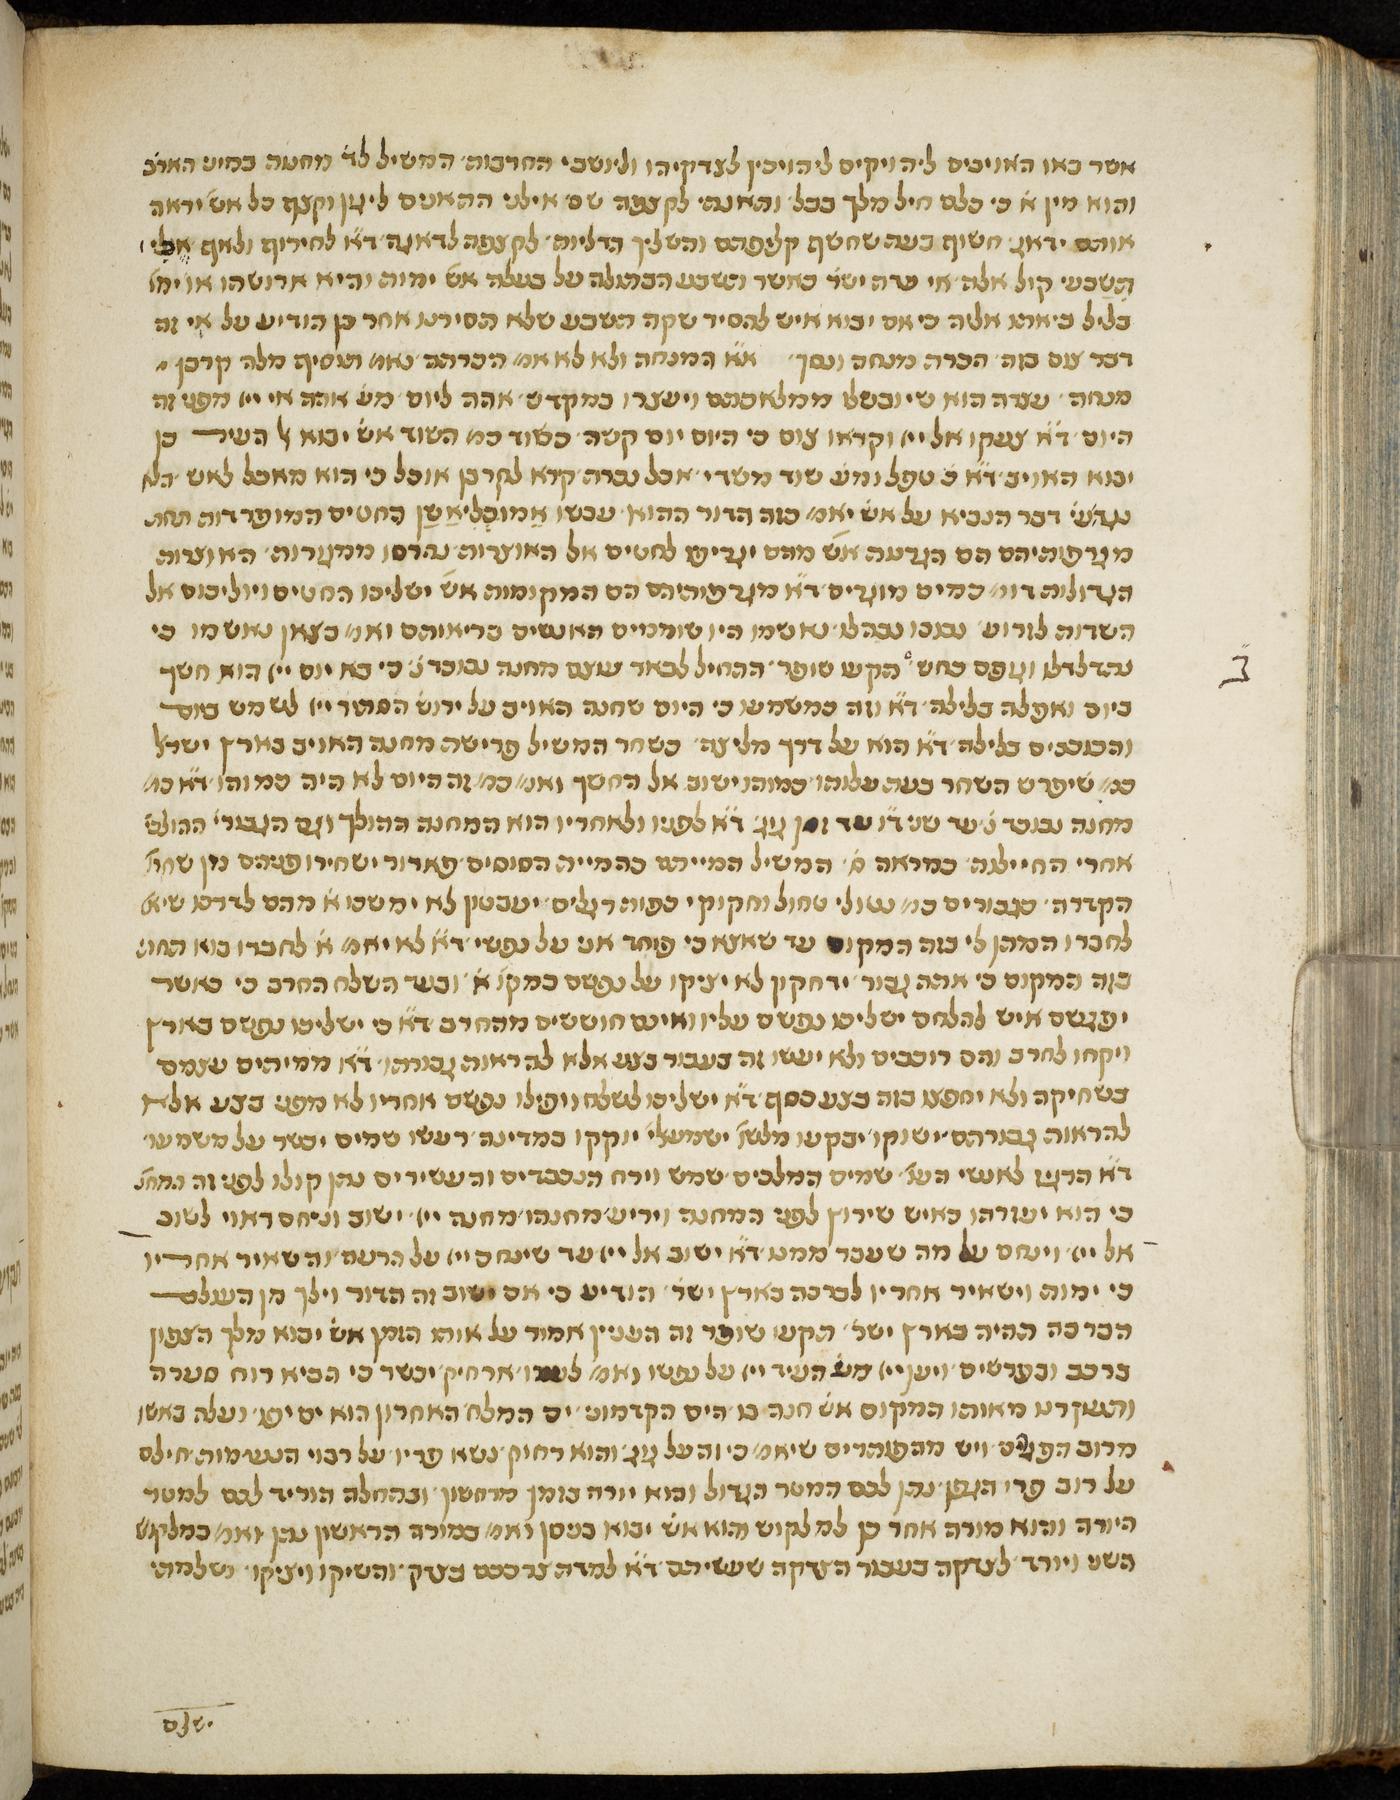 אשר באו האויבים ליהויקים ליהויכין לצדקיהו וליושבי החרבות המשיל לד' מחנה במיני הארבה
והוא מין א' כי כלם חיל מלך בבל והאנה לקצפה שם אילני התאנים ליגון וקצף כל אש' יראה
אותם ידאג חשוף בעה שחשף קליפתם והשליך הדליות לקצפה לדאגה ד"א לחירוף ולאיף אבלי
השבעי קול אלה אי עדה ישר' כאשר תשבע הבתולה על בעלה אש' ימות והיא ארושתו או
כליל ביאתו אליה כי אם יבוא איש להסיר שקה תשבע שלא תסירנו אחר כן הודיע על אי זה
דבר צום בזה הכרת מנחה ונסך א"א המנחה ולא לא אמ' הכרתה נאמ' תוסיף מלה קרבן
מנחה עצרה הוא שיובטלו ממלאכתם ויעצרו במקדש אהה ליום מע' אהה אי ייי מפני זה
היום ד"א צעקו אל ייי וקראו צום כי היום יום קשה כשוד כמ' השוד אש' יבוא העיר כן
יבוא האויב ד"א כ' טפל ומע' שוד משדי אכל נכרת קרא לקרבן אוכל כי הוא מאכל לאש הלא
נגד עי' דבר הנביא על אש' יאמ' בזה הדור ההוא עבשו אמובליאשן החטים המופרדות תחת
מגרפותיהם הם הנרעה אש' מהם יגריעו לחטים אל האוצרות נהרסו ממגרות האוצרות
הגדולות דומ' כמים מוגרים ד"א מגרפותיהם הם המקומות אש' ישליכו החטים ויוליכום אל
השדות לזרוע נבוכו נבהלו נאשמו היו שוממים האנשים בריאותם ואמ' בצאן נאשמו כי
נתדלדלו וגופם כחש תקעו שופר התחיל לבאר עוצם מחנה נבוכד נ' כי בא יום ייי הוא חשך
ביום ואפלה בלילה ד"א וזה כמשמעו כי היום שחנה האויב על ירוש' הסתיר ייי לשמש ביום
והכוכבים בלילה ד"א הוא על דרך מליצה כשחר המשיל פרישת מחנה האויב בארץ ישראל
כמ' שיפרש השחר בעת עלותו כמוהו ישוב אל החשך ואמ' כמ' זה היום לא היה כמוהו ד"א כמ'
מחנה נבוכד נ' עד שני ד"ו עד זמן גוג ד"א לפניו ולאחריו הוא המחנה ההולך וגם הגבורי' ההולכי'
אחרי החיילות כמראה ס' המשיל המייתם כהמיית הסוסים פארור ישחירו פניהם מן שחר'
הקדרה כגבורים כמ' נטולי טחול וחקוקי כפות רגלים יעבטון לא ימשכו א' מהם לדרכו שיאמ'
לחברו המתן לי בזה המקום עד שאצא כי פוחד אני על נפשי ד"א לא יאמ' א' לחברו בוא תחנה
בזה המקום כי אתה גבור ידחקון לא יציקו על נפשם במקו' א' ובעד השלח החרב כי כאשר
יפגשם איש להלחם ישליכו נפשם עליו ואינם חוששים מהחרב ד"א כי ישליכו נפשם בארץ
ויקחו לחרב והם רוכבים ולא יעשו זה בעבור בצע אלא להראות גבורתו ד"א ממיתים עצמם
בשחיקה ולא יחפצו בזה בצע כסף ד"א ישליכו לשלח ויפילו נפשם אחריו לא מפני בצע אלא
להראות גבורתם ישוקו יבקעו מלשו' ישמעאלי יזקקו במדינה רעשו שמים יכשר על משמעו
ד"א הרעיש לאנשי העו' שמים המלכים שמש וירח הנכבדים והעשירים נתן קולו לפני זה המחנה
כי הוא יעזרהו כאיש שירוץ לפני המחנה ויריע מחנהו מחנה ייי ישוב וניחם ראוי לשוב
אל ייי וינחם על מה שעבר ממנו ד"א ישוב אל ייי עד שינחם ייי על הרעה והשאיר אחריו
כי ימות וישאיר אחריו לברכה בארץ ישר' הודיע כי אם ישוב זה הדור וילך מן העולם
הברכה תהיה בארץ ישר' תקעו שופר זה הענין אמור על אותו הזמן אש' יבוא מלך הצפון
ברכב ובפרשים ויען ייי מע' העיר ייי על נפשו ואמ' לעזרו ארחיק יכשר כי הביא רוח סערה
ותעקרנו מאותו המקום אש' חנה בו הים הקדמוני ים המלח האחרון הוא ים יפו ועלה באשו
מרוב הפגרים ויש מהפותרים שיאמ' כי זה על גוג והוא רחוק נשא פריו על רבוי הנשמות חילם
על רוב פרי הגפן נתן לכם המטר הגדול ובוא יורה בזמן מרחשון ובתחלה הוריד לכם למטר
היורה והוא מורה אחר כן למלקוש הוא אש' יבוא בניסן ואמ' במורה הראשון נתן ואמ' כמלקוש
השני ויורד לצדקה בעבור הצדקה שעשיתם ד"א למדה צרככם בצדק והשיקו ויציקו ושלמתי
ישלם